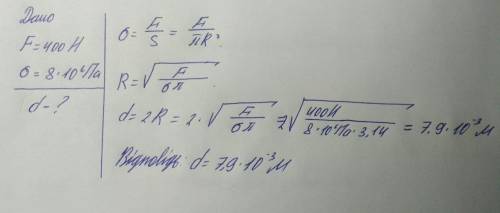 Дано
F = 400 Н
σ = 8·10⁶ Па
d - ?
σ = F/S = F/πR².
R = √(F/σπ).
d = 2R = 2·√(F/σπ) = 2√(400Н/8·10⁶Па·3,14) = 7.9·10⁻³ м
Відповідь: d = 7.9·10⁻³ м